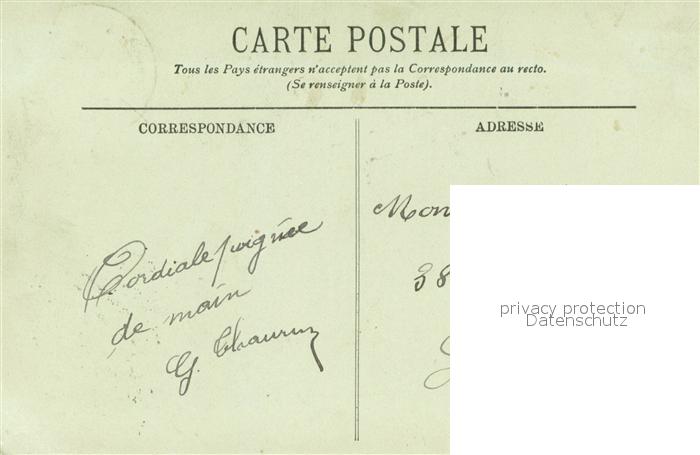 CARTE POSTALE
Tous les Pays étrangers n'acceptent pas la Correspondance au recto.
(Se renseigner à la Poste).
CORRESPONDANCE
ADRESSE
Cordiale poignée
de main
G.
Mon
38
privacy protection
Datenschutz